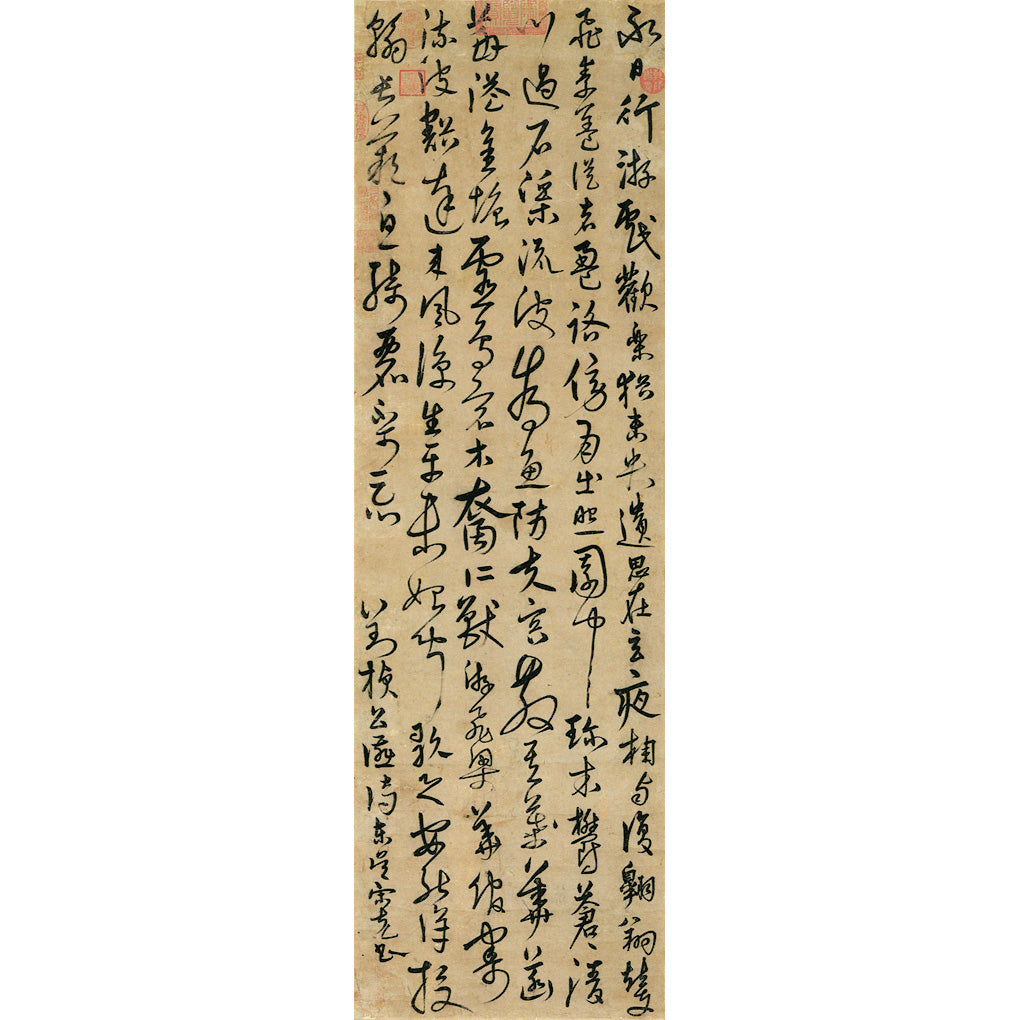 永日行游戲歡樂猶未央遺思在玄夜相與復翱翔輦
飛素蓋從者盈路傍月出照園中珍木鬱蒼蒼清
川過石渠流波為魚防夫容散其葉華菡
萏溢金塘靈鳥宿水裔仁獸游飛梁華館寄
流波豁達來風涼生平未始聞歌之安能詳投
翰長歎息綺麗不可忘
劉楨公讌詩東吳宋克書